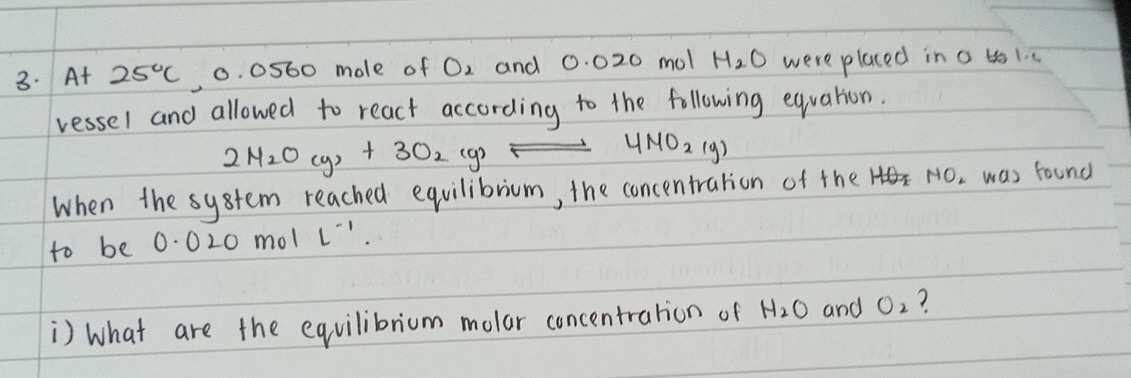 3. At 25°C, 0.0560 mole of O₂ and 0.020 mol N₂O were placed in a
vessel and allowed to react according to the following equation.
2N₂O (g) + 3O₂ (g) ⇌ 4NO₂ (g)
When the system reached equilibrium, the concentration of the NO₂ was found
to be 0.020 mol L⁻¹.
i) What are the equilibrium molar concentration of N₂O and O₂?